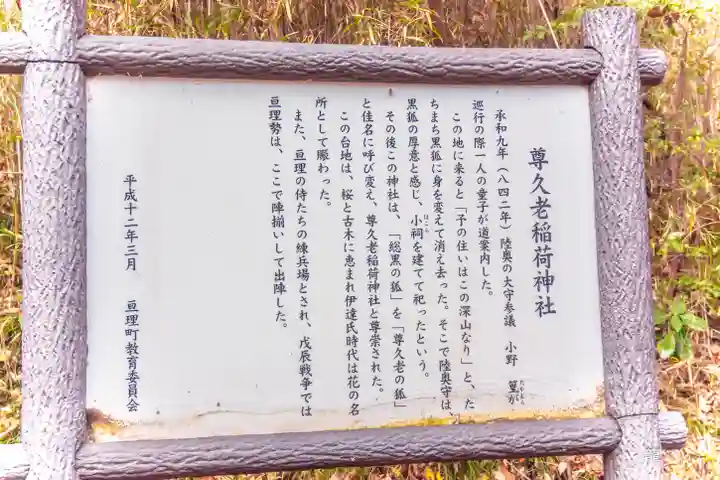 尊久老稲荷神社
承和九年（八四二年）陸奥の大守参議　小野　篁が
巡行の際一人の童子が道案内した。
この地に来ると「予の住いはこの深山なり」と、た
ちまち黒狐に身を変えて消え去った。そこで陸奥守は
黒狐の厚意と感じ、小祠を建てて祀ったという。
ほこら
その後この神社は、「総黒の狐」を「尊久老の狐」
と佳名に呼び変え、尊久老稲荷神社と尊崇された。
この台地は、桜と古木に恵まれ伊達氏時代は花の名
所として賑わった。
また、亘理の侍たちの練兵場とされ、戊辰戦争では
亘理勢は、ここで陣揃いして出陣した。
平成十二年三月　亘理町教育委員会